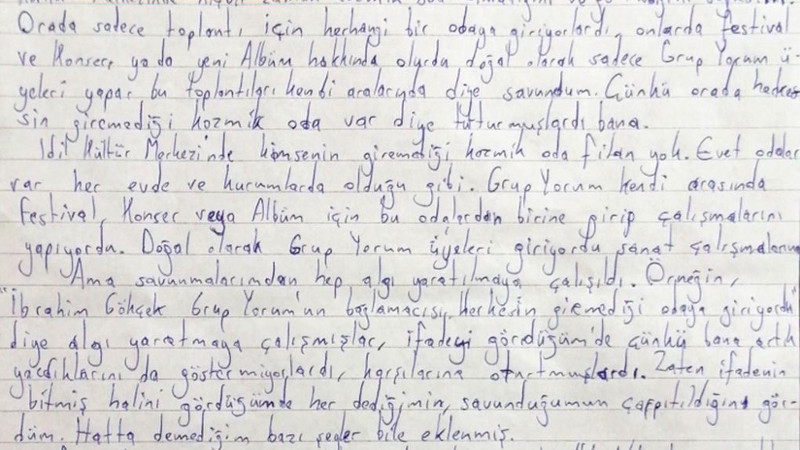 Orada sadece toplantı için herhangi bir odaya giriyorlardı, onlarda festival
ve Konsere ya da yeni Albüm hakkında olurdu doğal olarak sadece Grup Yorum ü-
yeleri yapar bu toplantıları kendi aralarında diye savundum. Çünkü orada herke-
sin giremediği kozmik oda var diye tutturmuşlardı bana.
İdil Kültür Merkezi'nde kimsenin giremediği kozmik oda filan yok. Evet odalar
var her evde ve kurumlarda olduğu gibi. Grup Yorum kendi arasında
festival, Konser veya Albüm için bu odalardan birine girip çalışmalarını
yapıyordu. Doğal olarak Grup Yorum üyeleri giriyordu sanat çalışmalarına
Ama savunmalarımdan hep algı yaratılmaya çalışıldı. Örneğin,
"İbrahim Gökçek Grup Yorum'un bağlamacısı, herkesin girmediği odaya giriyordu"
diye algı yaratmaya çalışmışlar, ifadeyi gördüğüm'de çünkü bana artık
yazdıklarını da göstermiyorlardı, karşılarına oturtmuşlardı. Zaten ifadenin
bitmiş halini gördüğümde her dediğimin, savunduğumun çarpıtıldığını gör-
düm. Hatta demediğim bazı şeyler bile eklenmiş.